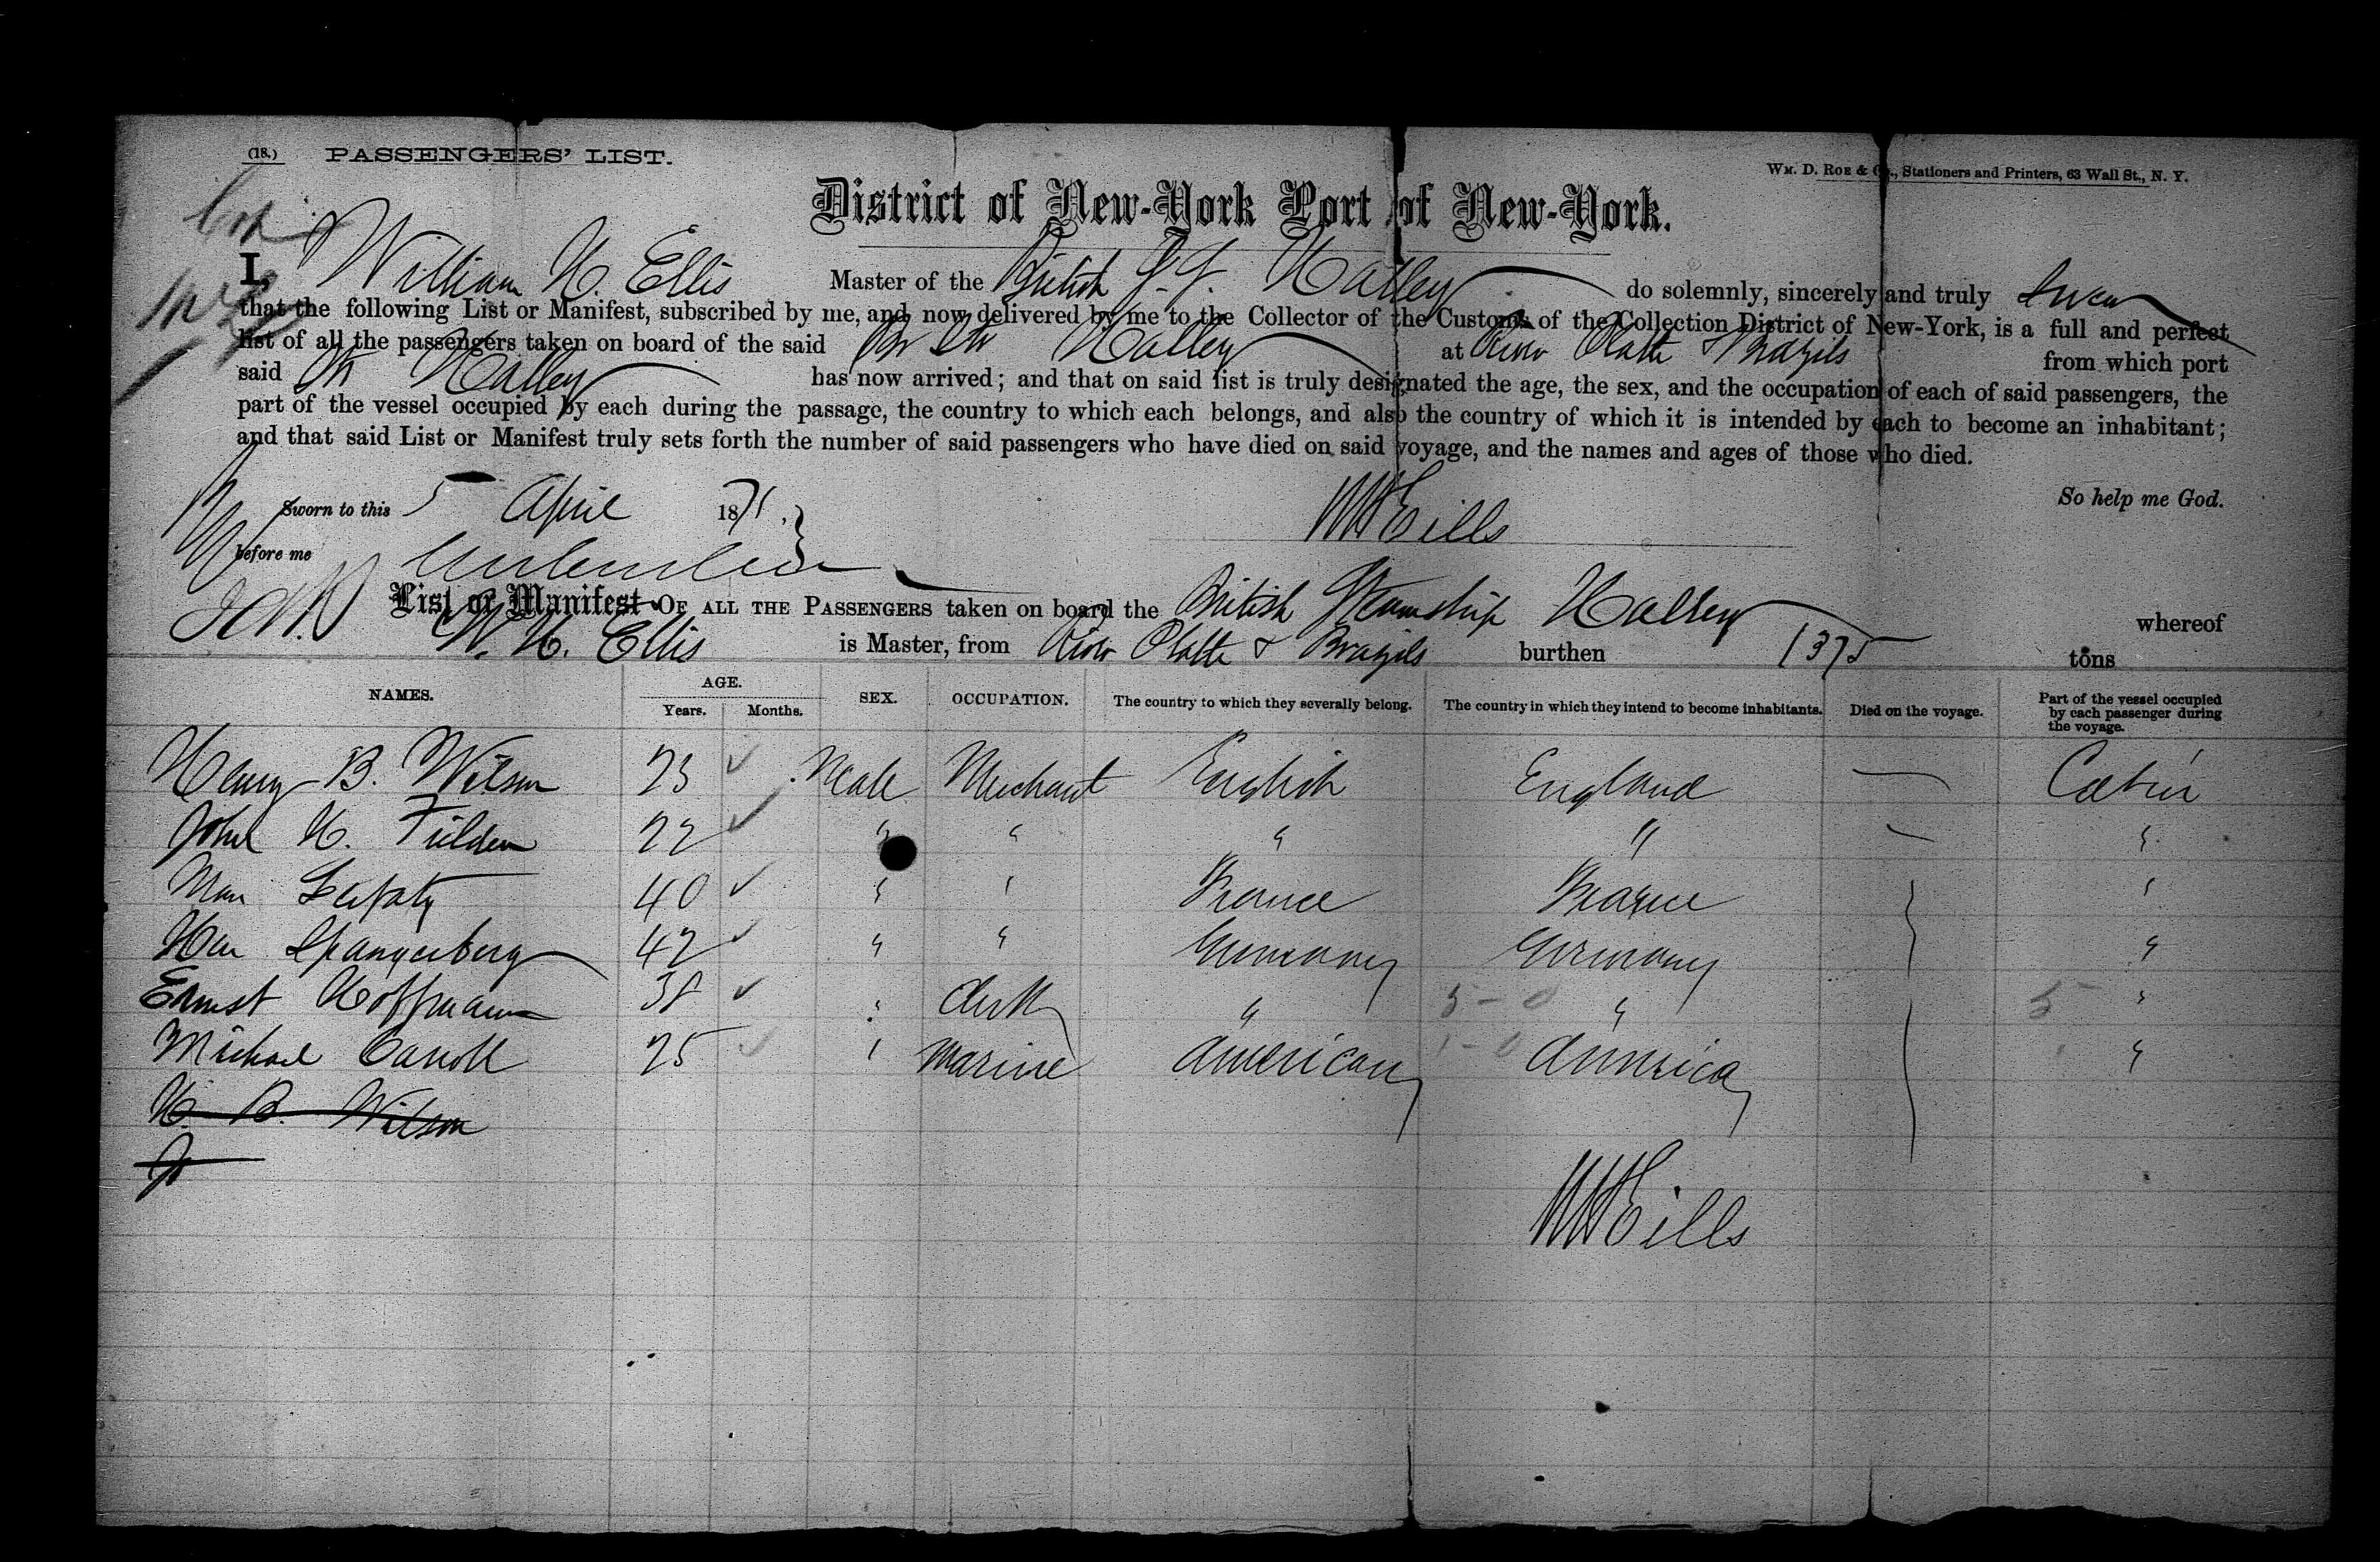 (18.) PASSENGERS' LIST.
WM. D. ROE & Co., Stationers and Printers, 63 Wall St., N. Y.
District of New-York Port of New-York.
I, William H. Ellis Master of the British S.S. Halley do solemnly, sincerely and truly Swear
that the following List or Manifest, subscribed by me, and now delivered by me to the Collector of the Customs of the Collection District of New-York, is a full and perfect
list of all the passengers taken on board of the said Br Str Halley at River Platte & Brazils from which port
said Str Halley has now arrived; and that on said list is truly designated the age, the sex, and the occupation of each of said passengers, the
part of the vessel occupied by each during the passage, the country to which each belongs, and also the country of which it is intended by each to become an inhabitant;
and that said List or Manifest truly sets forth the number of said passengers who have died on said voyage, and the names and ages of those who died.
So help me God.
Sworn to this 5 April 1871.
WHEills
before me
List or Manifest OF ALL THE PASSENGERS taken on board the British Steamship Halley whereof
W. H. Ellis is Master, from River Platte & Brazils burthen 1375 tons
NAMES. AGE. Years. Months. SEX. OCCUPATION. The country to which they severally belong. The country in which they intend to become inhabitants. Died on the voyage. Part of the vessel occupied by each passenger during the voyage.
Henry B. Wilson 23 Male Merchant English England — Cabin
John H. Fielden 22 " " " " — "
40 " " France France "
Spangerberg 42 " " Germany Germany "
Ernest Hoffmann 38 " Clerk " " "
Michael Carroll 25 " Marine American America "
H. B. Wilson
Jo
WHEills